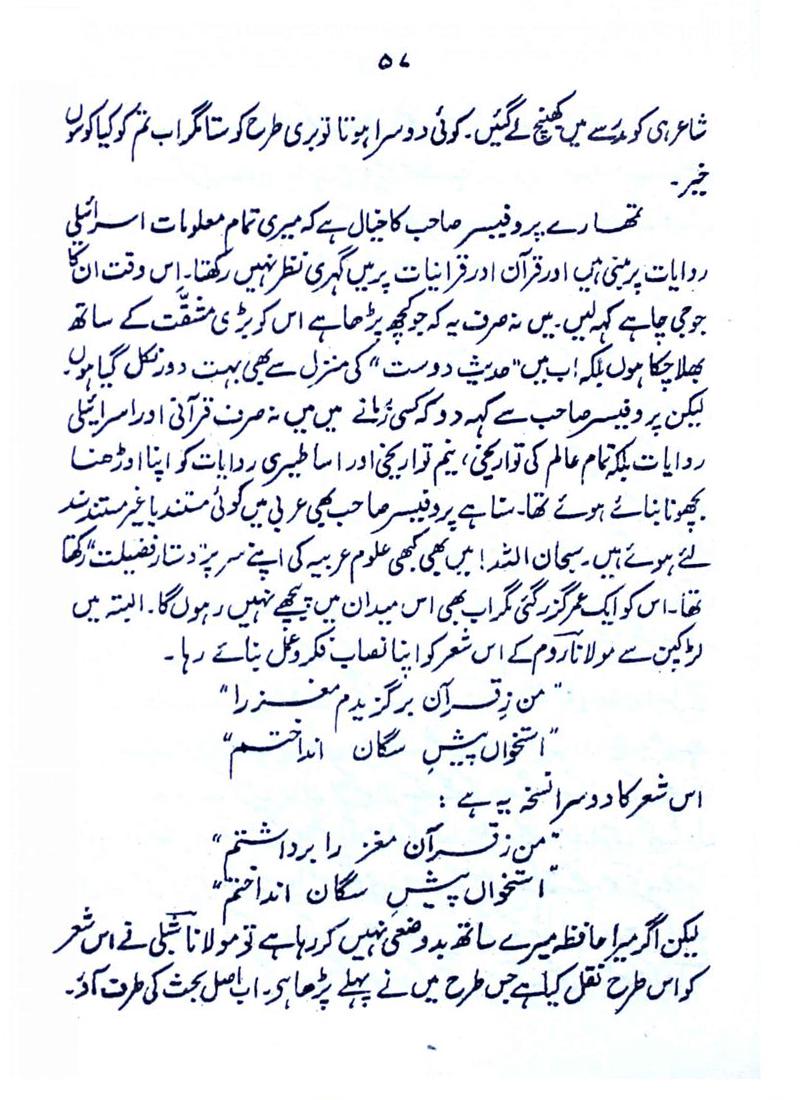 ۵۷
شاعر ہی کو مدرسے میں کھینچ لے گئیں۔ کوئی دوسرا ہوتا تو بری طرح کوستا مگر اب تم کو کیا کوسوں
خیر۔
تمھارے پروفیسر صاحب کا خیال ہے کہ میری تمام معلومات اسرائیلی
روایات پر مبنی ہیں اور قرآن اور قرانیات پر میں گہری نظر نہیں رکھتا۔ اس وقت ان کا
جو جی چاہے کہہ لیں۔ میں نہ صرف یہ کہ جو کچھ پڑھا ہے اس کو بڑی مشقّت کے ساتھ
بھلا چکا ہوں بلکہ اب میں "حدیثِ دوست" کی منزل سے بھی بہت دور نکل گیا ہوں۔
لیکن پروفیسر صاحب سے کہہ دو کہ کسی زمانے میں میں نہ صرف قرآنی اور اسرائیلی
روایات بلکہ تمام عالم کی تواریخی، نیم تواریخی اور اساطیری روایات کو اپنا اوڑھنا
بچھونا بنائے ہوئے تھا۔ سنا ہے پروفیسر صاحب بھی عربی میں کوئی مستند یا غیر مستند سند
لئے ہوئے ہیں۔ سبحان اللہ! میں بھی کبھی علوم عربیہ کی اپنے سر پر "دستار فضیلت" رکھتا
تھا۔ اس کو ایک عمر گزر گئی مگر اب بھی اس میدان میں پیچھے نہیں رہوں گا۔ البتہ میں
لڑکپن سے مولانا رومؔ کے اس شعر کو اپنا نصاب فکر و عمل بنائے رہا۔
"من زِ قرآن برگزیدم مغز را"
"استخواں پیشِ سگان انداختم"
اس شعر کا دوسرا نسخہ یہ ہے :
"من ز قرآن مغز را برداشتم"
"استخواں پیشِ سگان انداختم"
لیکن اگر میرا حافظہ میرے ساتھ بدوضعی نہیں کر رہا ہے تو مولانا شبلیؔ نے اس شعر
کو اس طرح نقل کیا ہے جس طرح میں نے پہلے پڑھا ہے۔ اب اصل بحث کی طرف آؤ۔